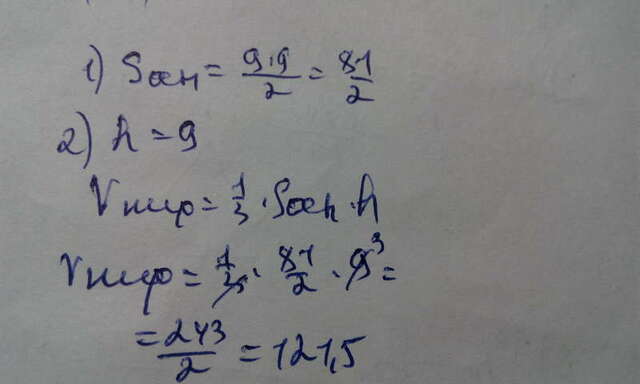 1) Sосн = 9·9/2 = 81/2
2) h = 9
Vпир = 1/3 · Sосн · h
Vпир = 1/3 · 81/2 · 9³ =
= 243/2 = 121,5